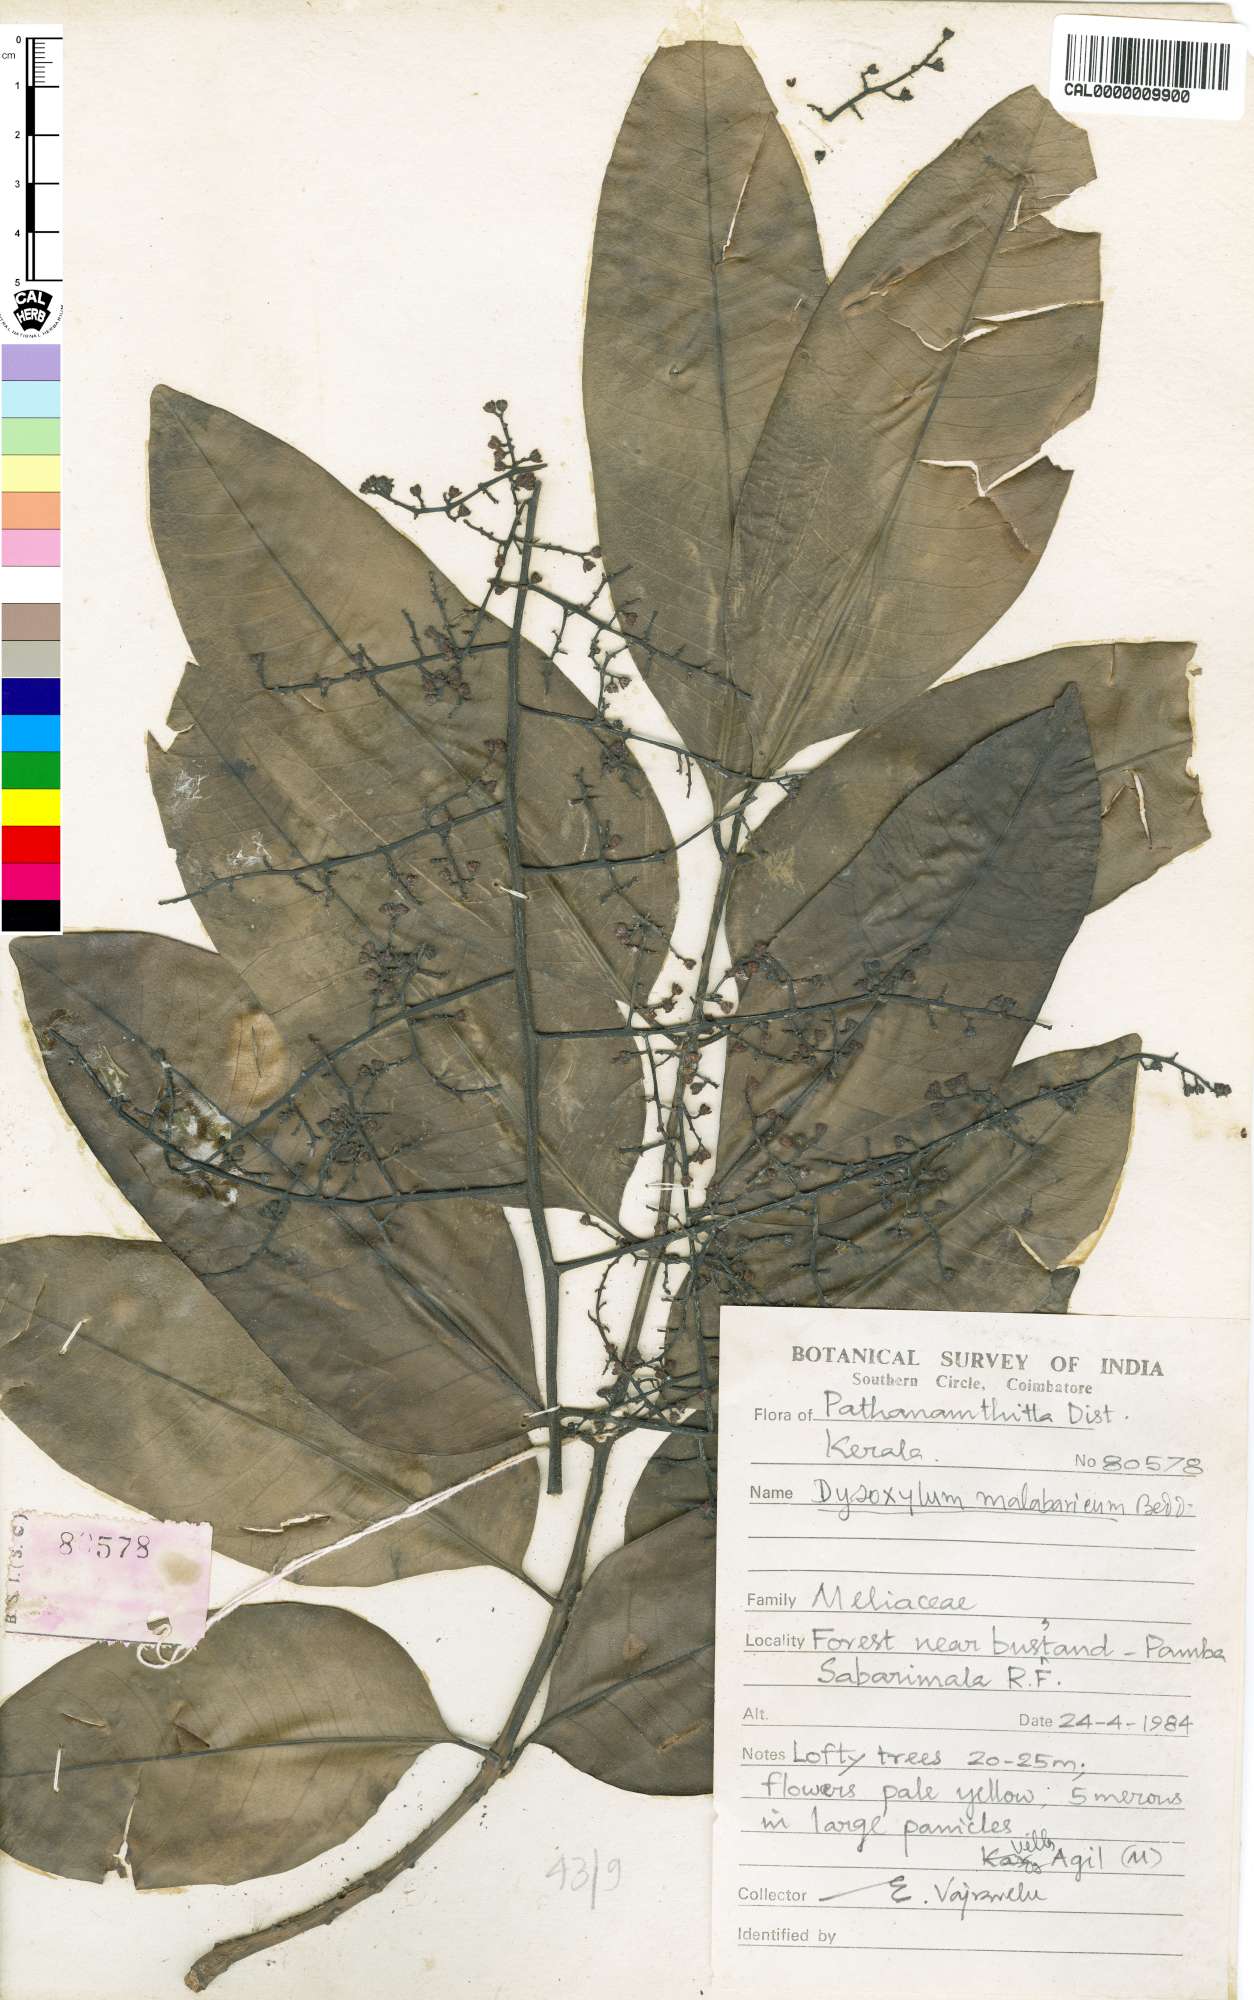 CAL0000009900
0
cm
1
2
3
4
5
CAL
HERB
BOTANICAL SURVEY OF INDIA
Southern Circle, Coimbatore
Flora of Pathanamthitta Dist.
Kerala. No 80578
Name Dysoxylum malabaricum Bedd.
Family Meliaceae
Locality Forest near bus stand - Pamba
Sabarimala R.F.
Alt. Date 24-4-1984
Notes Lofty trees 20-25m,
flowers pale yellow; 5 merous
in large panicles
Vella Agil (M)
Collector E. Vajravelu
Identified by
B. S. I. (S. C)
80578
43/9